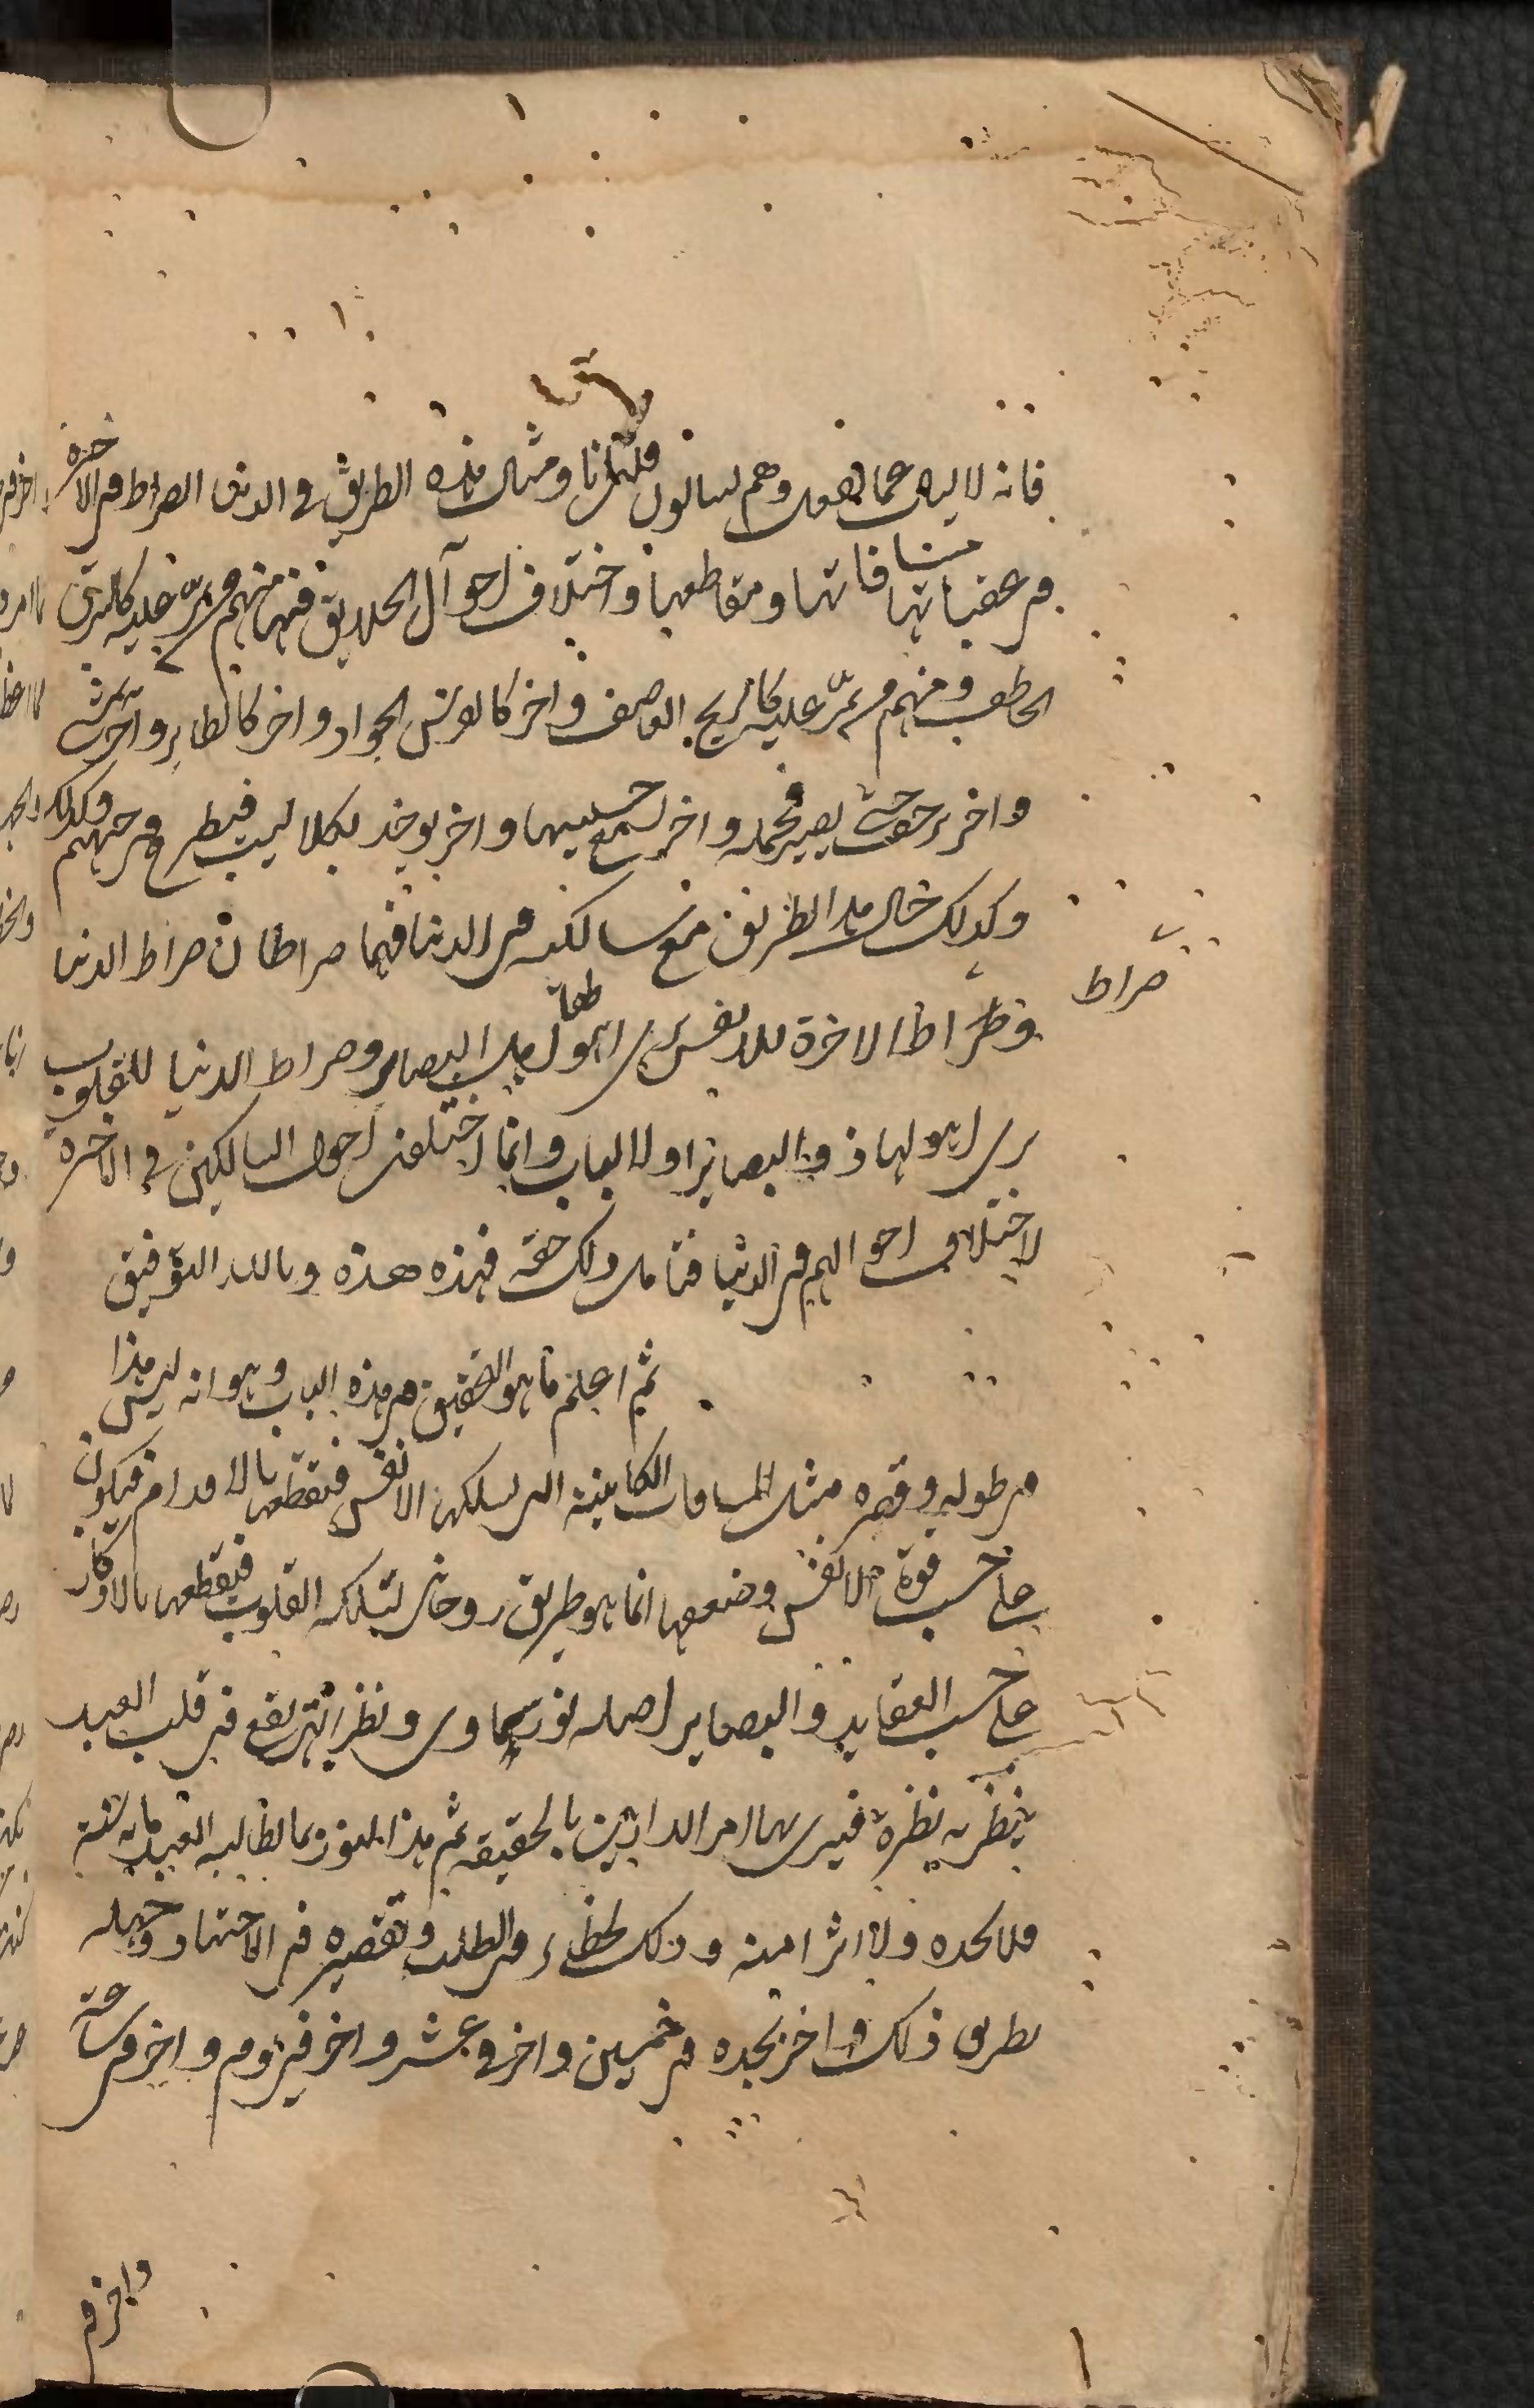 فانه لا يسال عما يفعل وهم يسالون قلت انا ومثال هذه الطريق في الدنيا الصراط في الاخرة
في عقباتها ومسافاتها ومقاطعها واختلاف احوال الخلايق فيها فمنهم من يمر عليه كالبرق
الخاطف ومنهم من يمر عليه كالريح العاصف واخر كالفرس الجواد واخر كالطاير واخر يمشي
واخر يزحف حتى يصير فحمة واخر يسمع حسيسها واخر يوخذ بكلاليب فيطرح في جهنم
وكذلك حال هذا الطريق مع سالكه في الدنيا فهما صراطان صراط الدنيا
وصراط الاخرة للانفس يرى اهوالها اهل البصاير وصراط الدنيا للقلوب
يرى اهوالها ذو البصاير اولا الباب وانما اختلف احوال السالكين في الاخرة
لاختلاف احوالهم في الدنيا فتامل ذلك حقه فهذه هذه وبالله التوفيق
ثم اعلم ما هو التحقيق في هذه الباب وهو انه ليس هذا
في طوله وقصره مثل المسافات الكاينة التي تسلكها الانفس فتقطعها بالاقدام فيكون
على حسب قوة الانفس وضعفها انما هو طريق روحاني تسلكه القلوب فتقطعها بالافكار
على حسب العقايد والبصاير اصله نور سماوي ونظر الهي يقع في قلب العبد
ينظر به نظرة فيرى بها امر الدارين بالحقيقة ثم هذا النور بما يطلبه العبد مايه سنة
فلا يجده ولا اثرا منه وذلك لخطاء في الطلب وتقصيره في الاجتهاد وجهله
بطريق ذلك واخر يجده في خمسين واخر في عشر واخر في يوم واخر في ساعة
واخر في
صراط